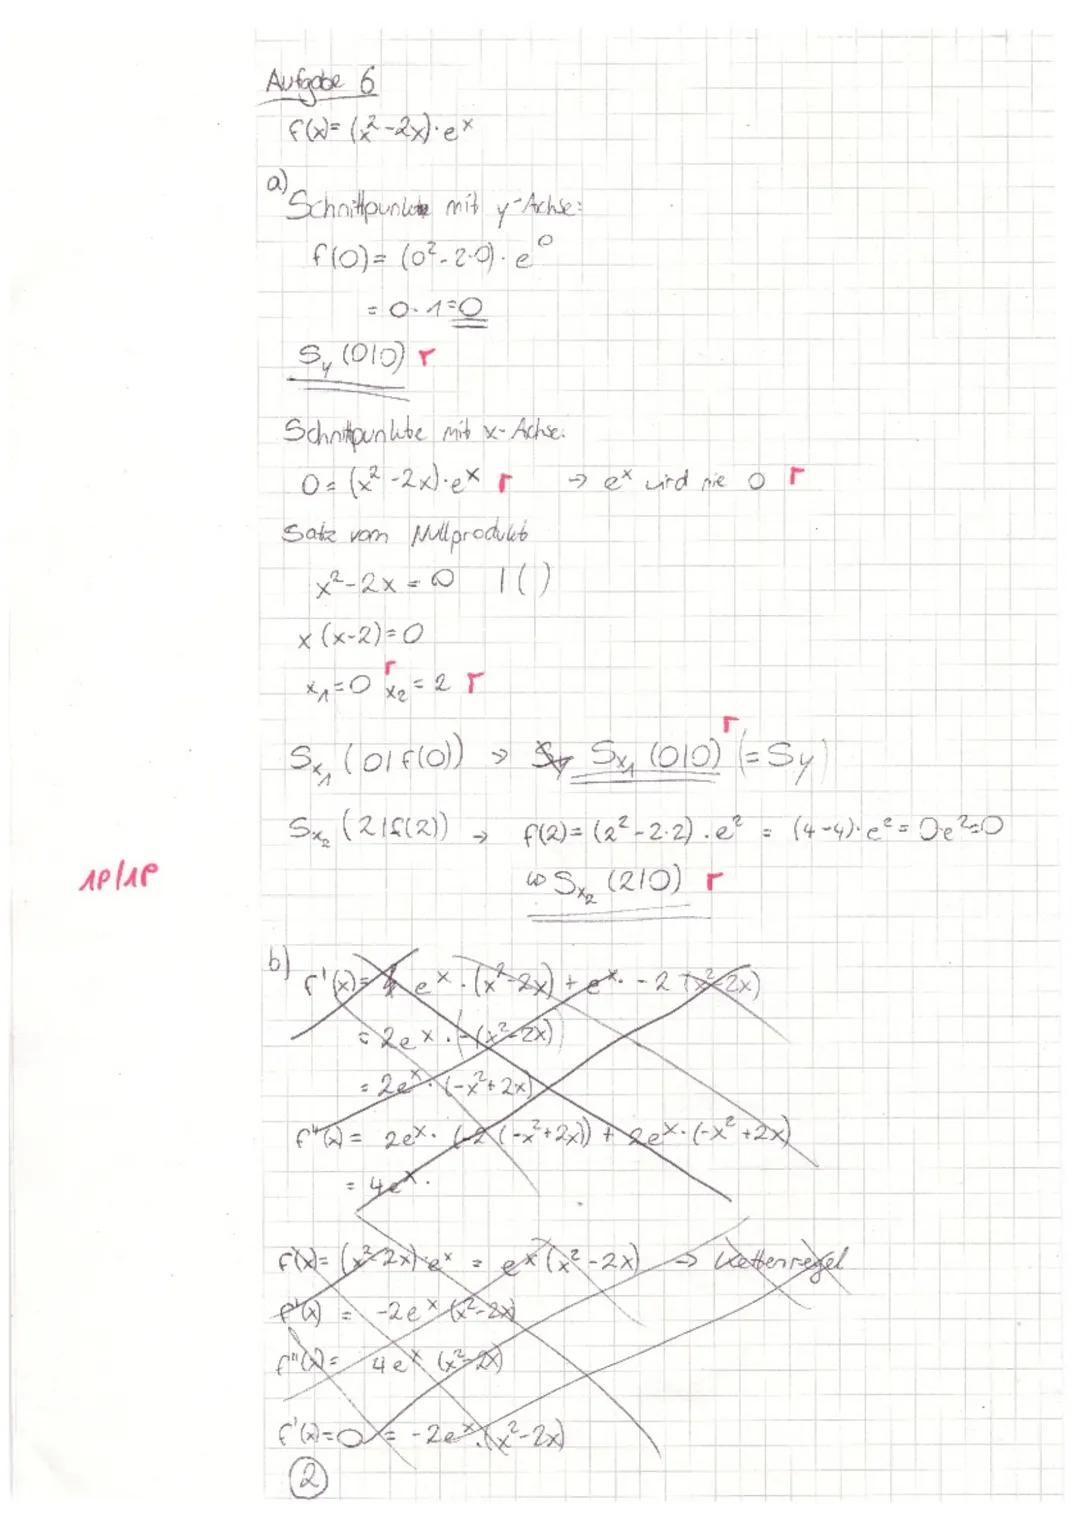 Aufgabe 6
f(x)= (x²-2x)·eˣ
a) Schnittpunkte mit y-Achse:
f(0)= (0²-2·0)·e⁰
= 0·1=0
S_y (0|0) r
Schnittpunkte mit x-Achse:
0= (x²-2x)·eˣ r → eˣ wird nie 0 r
Satz vom Nullprodukt
x²-2x = 0 | ( )
x (x-2)=0
x₁=0 r x₂=2 r
S_x₁ (0|f(0)) → S_x₁ (0|0) r (=Sy)
S_x₂ (2|f(2)) → f(2)= (2²-2·2)·e² = (4-4)·e²=0·e²=0
1P/1P
↳ S_x₂ (2|0) r
b) f'(x)= eˣ·(x²-2x) + eˣ·-2 (x²-2x)
= 2eˣ·(-(x²-2x))
= 2eˣ·(-x²+2x)
f''(x)= 2eˣ·(-2(-x²+2x)) + 2eˣ·(-x²+2x)
= 4eˣ·
f(x)= (x²-2x)·eˣ = eˣ(x²-2x) → Kettenregel
f'(x) = -2eˣ(x²-2x)
f''(x)= 4eˣ (x²-2x)
f'(x)=0 = -2eˣ·(x²-2x)
2